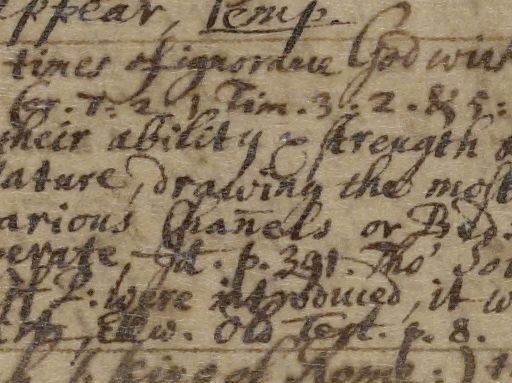 ppear, Temp.
times of ignorance God wink
Cor. 7. 2. 1. Tim. 3. 2. & 5:
their ability & strength
Nature, drawing the most
various Channels or Beds
p. 391. Tho'
were introduced, it w
Edw. Old Test. p. 8.
king of Rome.)